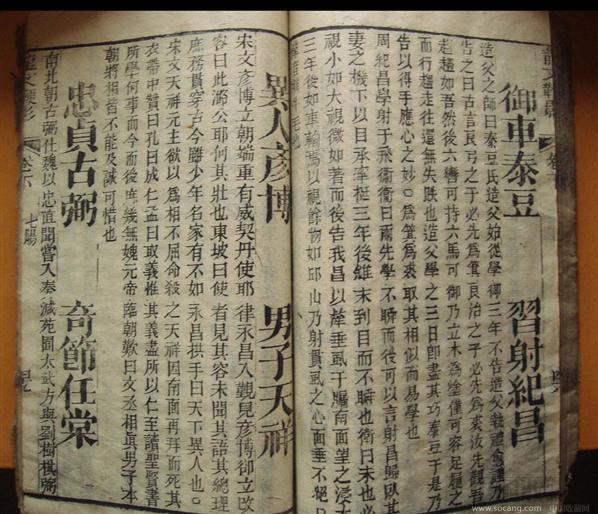 龍文鞭影
御車泰豆 習射紀昌
造父之師曰秦豆氏造父始從學御三年不告造父執禮愈謹乃
告之曰古言良弓之子必先為箕良冶之子必先為裘汝先觀吾
趨趨如吾然後六轡可持六馬可御乃立木為塗僅可容足履之
而行趨走往還無失跌也造父學之三日即盡其巧秦豆于是乃
告以得手應心之妙○為箕為裘取其相似而易學也
周紀昌學射于飛衛衛曰爾先學不瞬而後可以言射昌歸臥其
妻之機下以目承牽挺三年後錐末到目而不瞬也衛曰未也必
視小如大視微如著而後告我昌以氂垂虱于牖南面望之浸大
三年後如車輪焉以視餘物如邱山乃射貫虱之心面垂不絕○
異人彥博 男子天祥
宋文彥博立朝端重有威契丹使耶律永昌入覲見彥博御立改
容曰此潞公耶何其壯也東坡曰使者見其容未聞其語其總理
庶務貫穿古今雖少年名家有不如永昌拱手曰天下異人也○
宋文天祥元主欲以為相不屈命殺之天祥因南面再拜而死其
衣帶中贊曰孔曰成仁孟曰取義惟其義盡所以仁至讀聖賢書
所學何事而今而後庶幾無媿元帝臨朝歎曰文丞相真男子本
朝將相皆不能及誠可惜也
忠貞古弼 奇節任棠
南北朝古弼仕魏以忠直聞嘗入奏減苑囿太武方與劉樹棋弼
龍文鞭影 卷下 七陽
www.socang.com